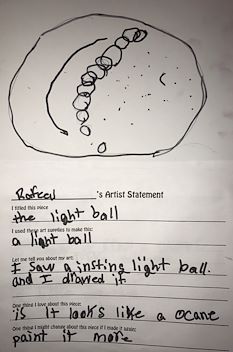 Rafeed 's Artist Statement
I titled this piece
the light ball
I used these art supplies to make this:
a light ball
Let me tell you about my art:
I saw a insting light ball.
and I drawed it.
One thing I love about this piece:
is It looks like a ocane
One thing I might change about this piece if I made it again:
paint it more